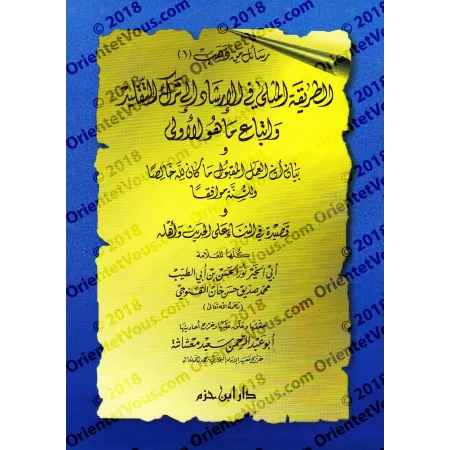 رسائل من ذهب (١)
الطريقة المثلى في الإرشاد إلى ترك التقليد
واتباع ما هو الأولى
و
بيان أن العمل المقبول ما كان لله خالصا
وللسنة موافقا
و
قصيدة في الثناء على الحديث وأهله
كلها للعلامة
أبي الخير نور الحسن بن أبي الطيب
محمد صديق حسن خان القنوجي
(رحمه الله تعالى)
حققها وعلق عليها وخرج أحاديثها
أبو عبد الرحمن سعيد معشاشة
دار ابن حزم
© 2018
OrientetVous.com